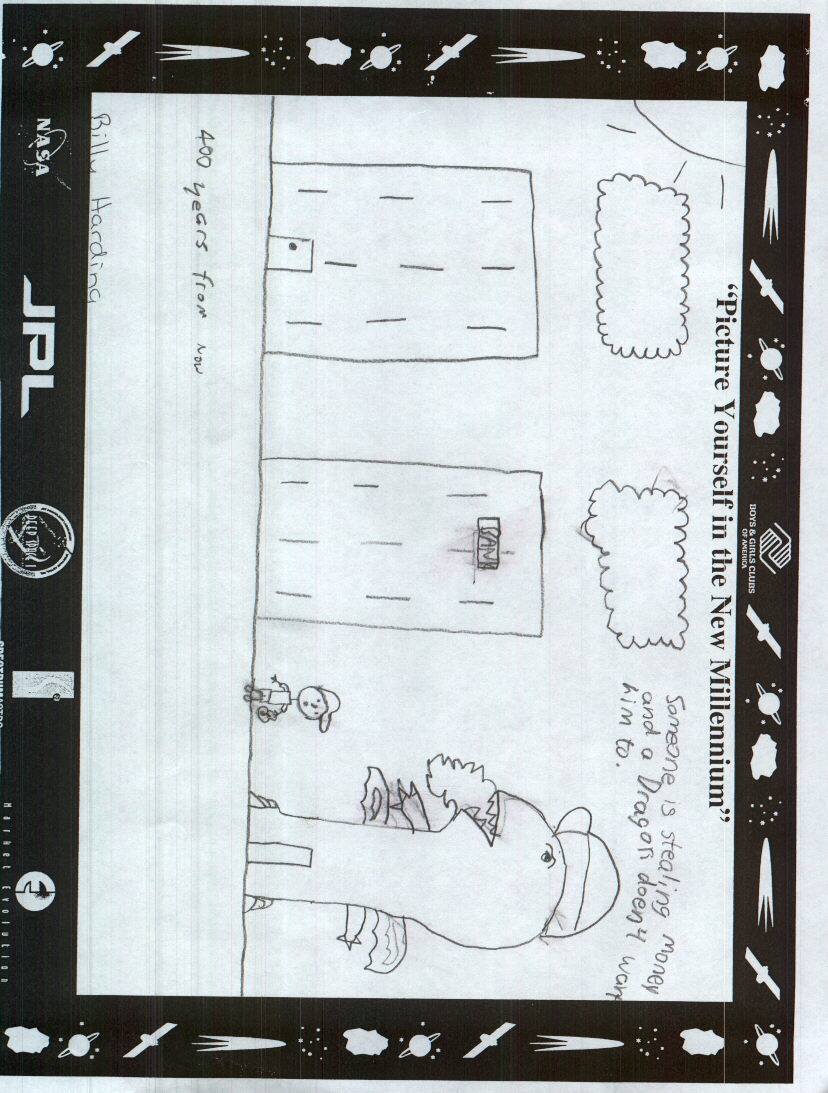 BOYS & GIRLS CLUBS
OF AMERICA
“Picture Yourself in the New Millennium”
Someone is stealing money
and a Dragon doen't want
him to.
BANK
400 years from now
Billy Harding
NASA
JPL